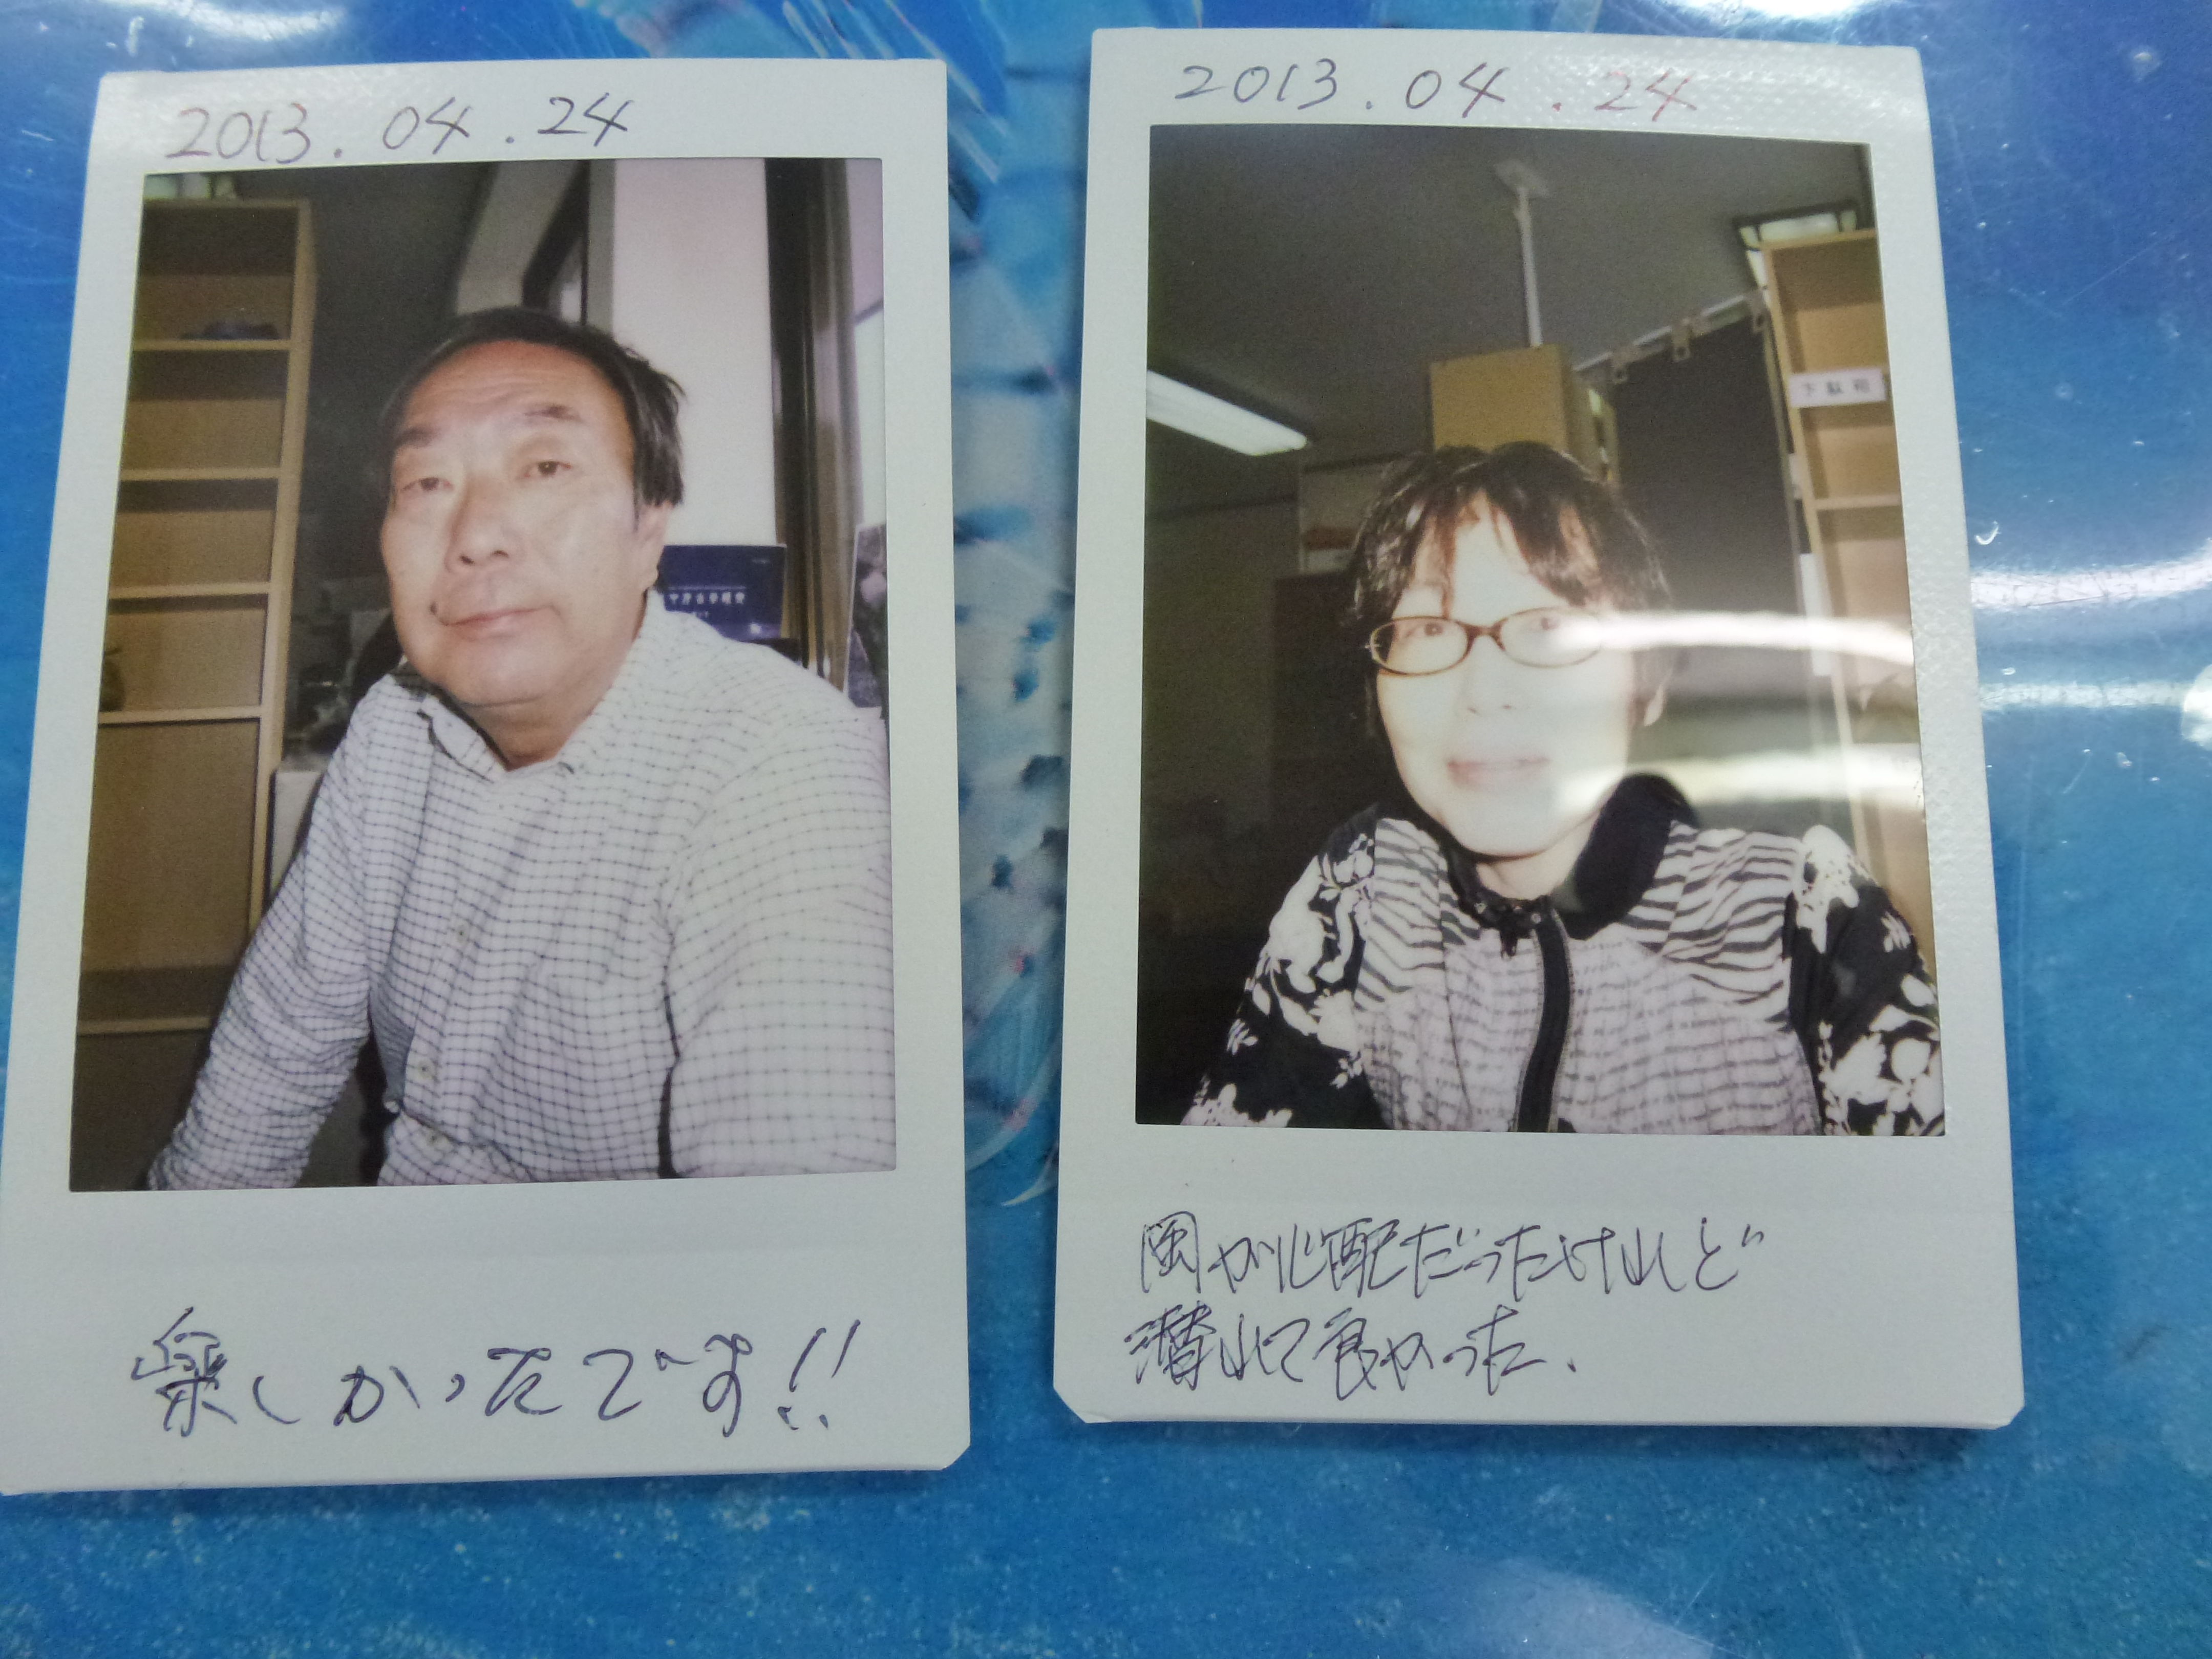 2013.04.24
楽しかったです!!
2013.04.24
風が心配だったけれど
潜れて良かった.
下駄箱